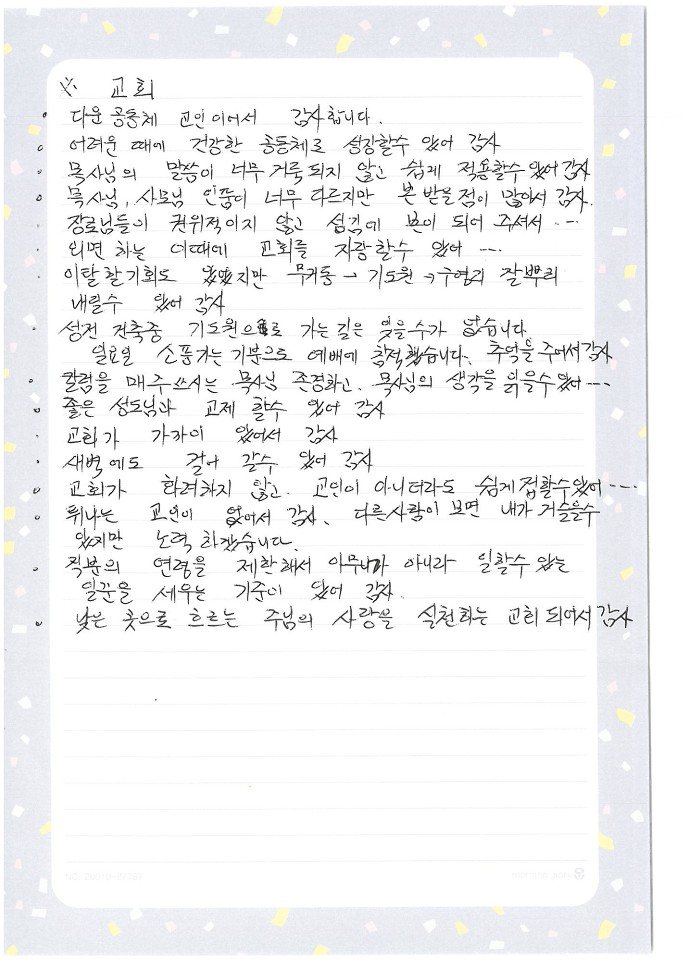 ※ 교회
다운공동체 교인이어서 감사합니다.
어려운 때에 건강한 공동체로 성장할수 있어 감사
목사님의 말씀이 너무 거룩되지 않고 쉽게 적용할수있어 감사
목사님, 사모님 인품이 너무 다르지만 본 받을점이 많아서 감사.
장로님들이 권위적이지 않고 섬김에 본이 되어 주셔서 ...
외면 하는 이때에 교회를 자랑할수 있어 ...
이탈할기회도 있었지만 무거동 → 기도원 → 구영리 잘뿌리
내릴수 있어 감사
성전 건축중 기도원으로 가는길은 잊을수가 없습니다
일요일 소풍가는기분으로 예배에 참석했습니다. 추억을주어서감사
칼럼을 매주쓰시는 목사님 존경하고. 목사님의 생각을 읽을수있어...
좋은 성도님과 교제 할수 있어 감사
교회가 가까이 있어서 감사
새벽에도 걸어 갈수 있어 감사
교회가 화려하지 않고. 교인이 아니더라도 쉽게접할수있어 ....
튀나는 교인이 없어서 감사. 다른사람이 보면 내가 거슬을수
있지만 노력하겠습니다.
직분의 연령을 제한해서 아무나가 아니라 일할수 있는
일꾼을 세우는 기준이 있어 감사.
낮은 곳으로 흐르는 주님의 사랑을 실천하는 교회되어서 감사